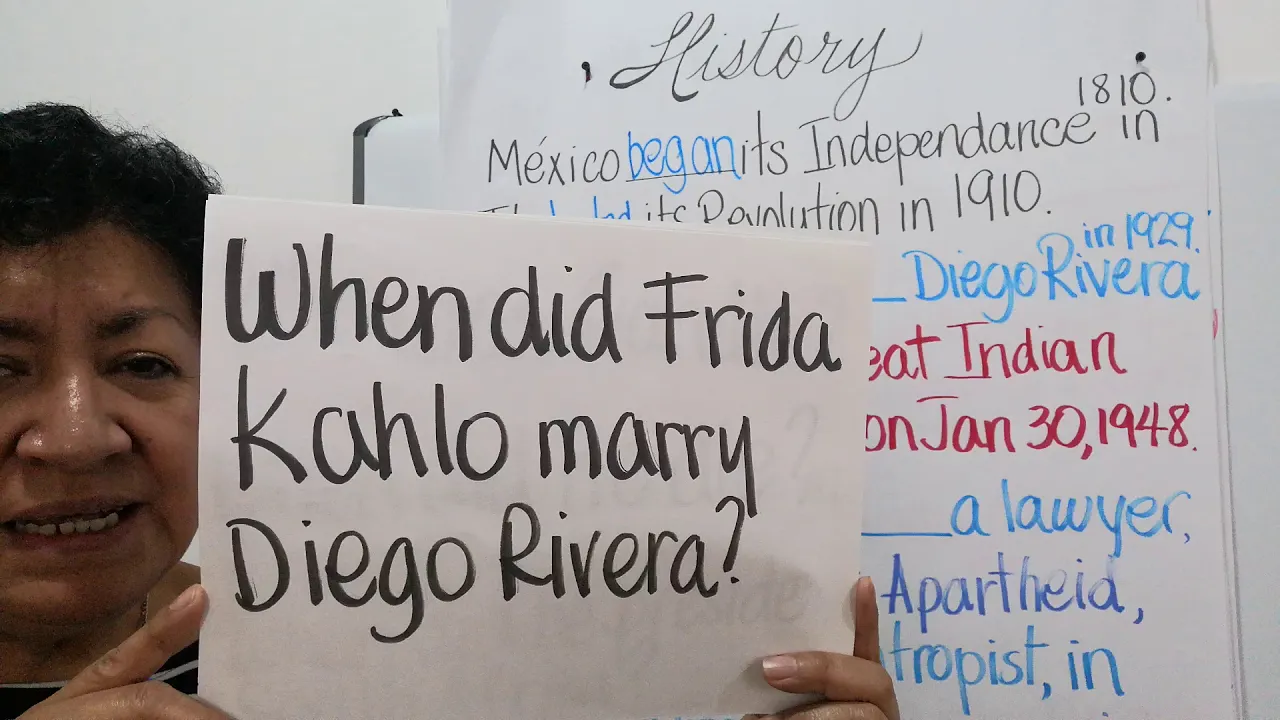 History
1810.
México began its Independance in
its Revolution in 1910.
in 1929.
Diego Rivera
Indian
on Jan 30, 1948.
a lawyer,
Apartheid,
in
When did Frida
Kahlo marry
Diego Rivera?